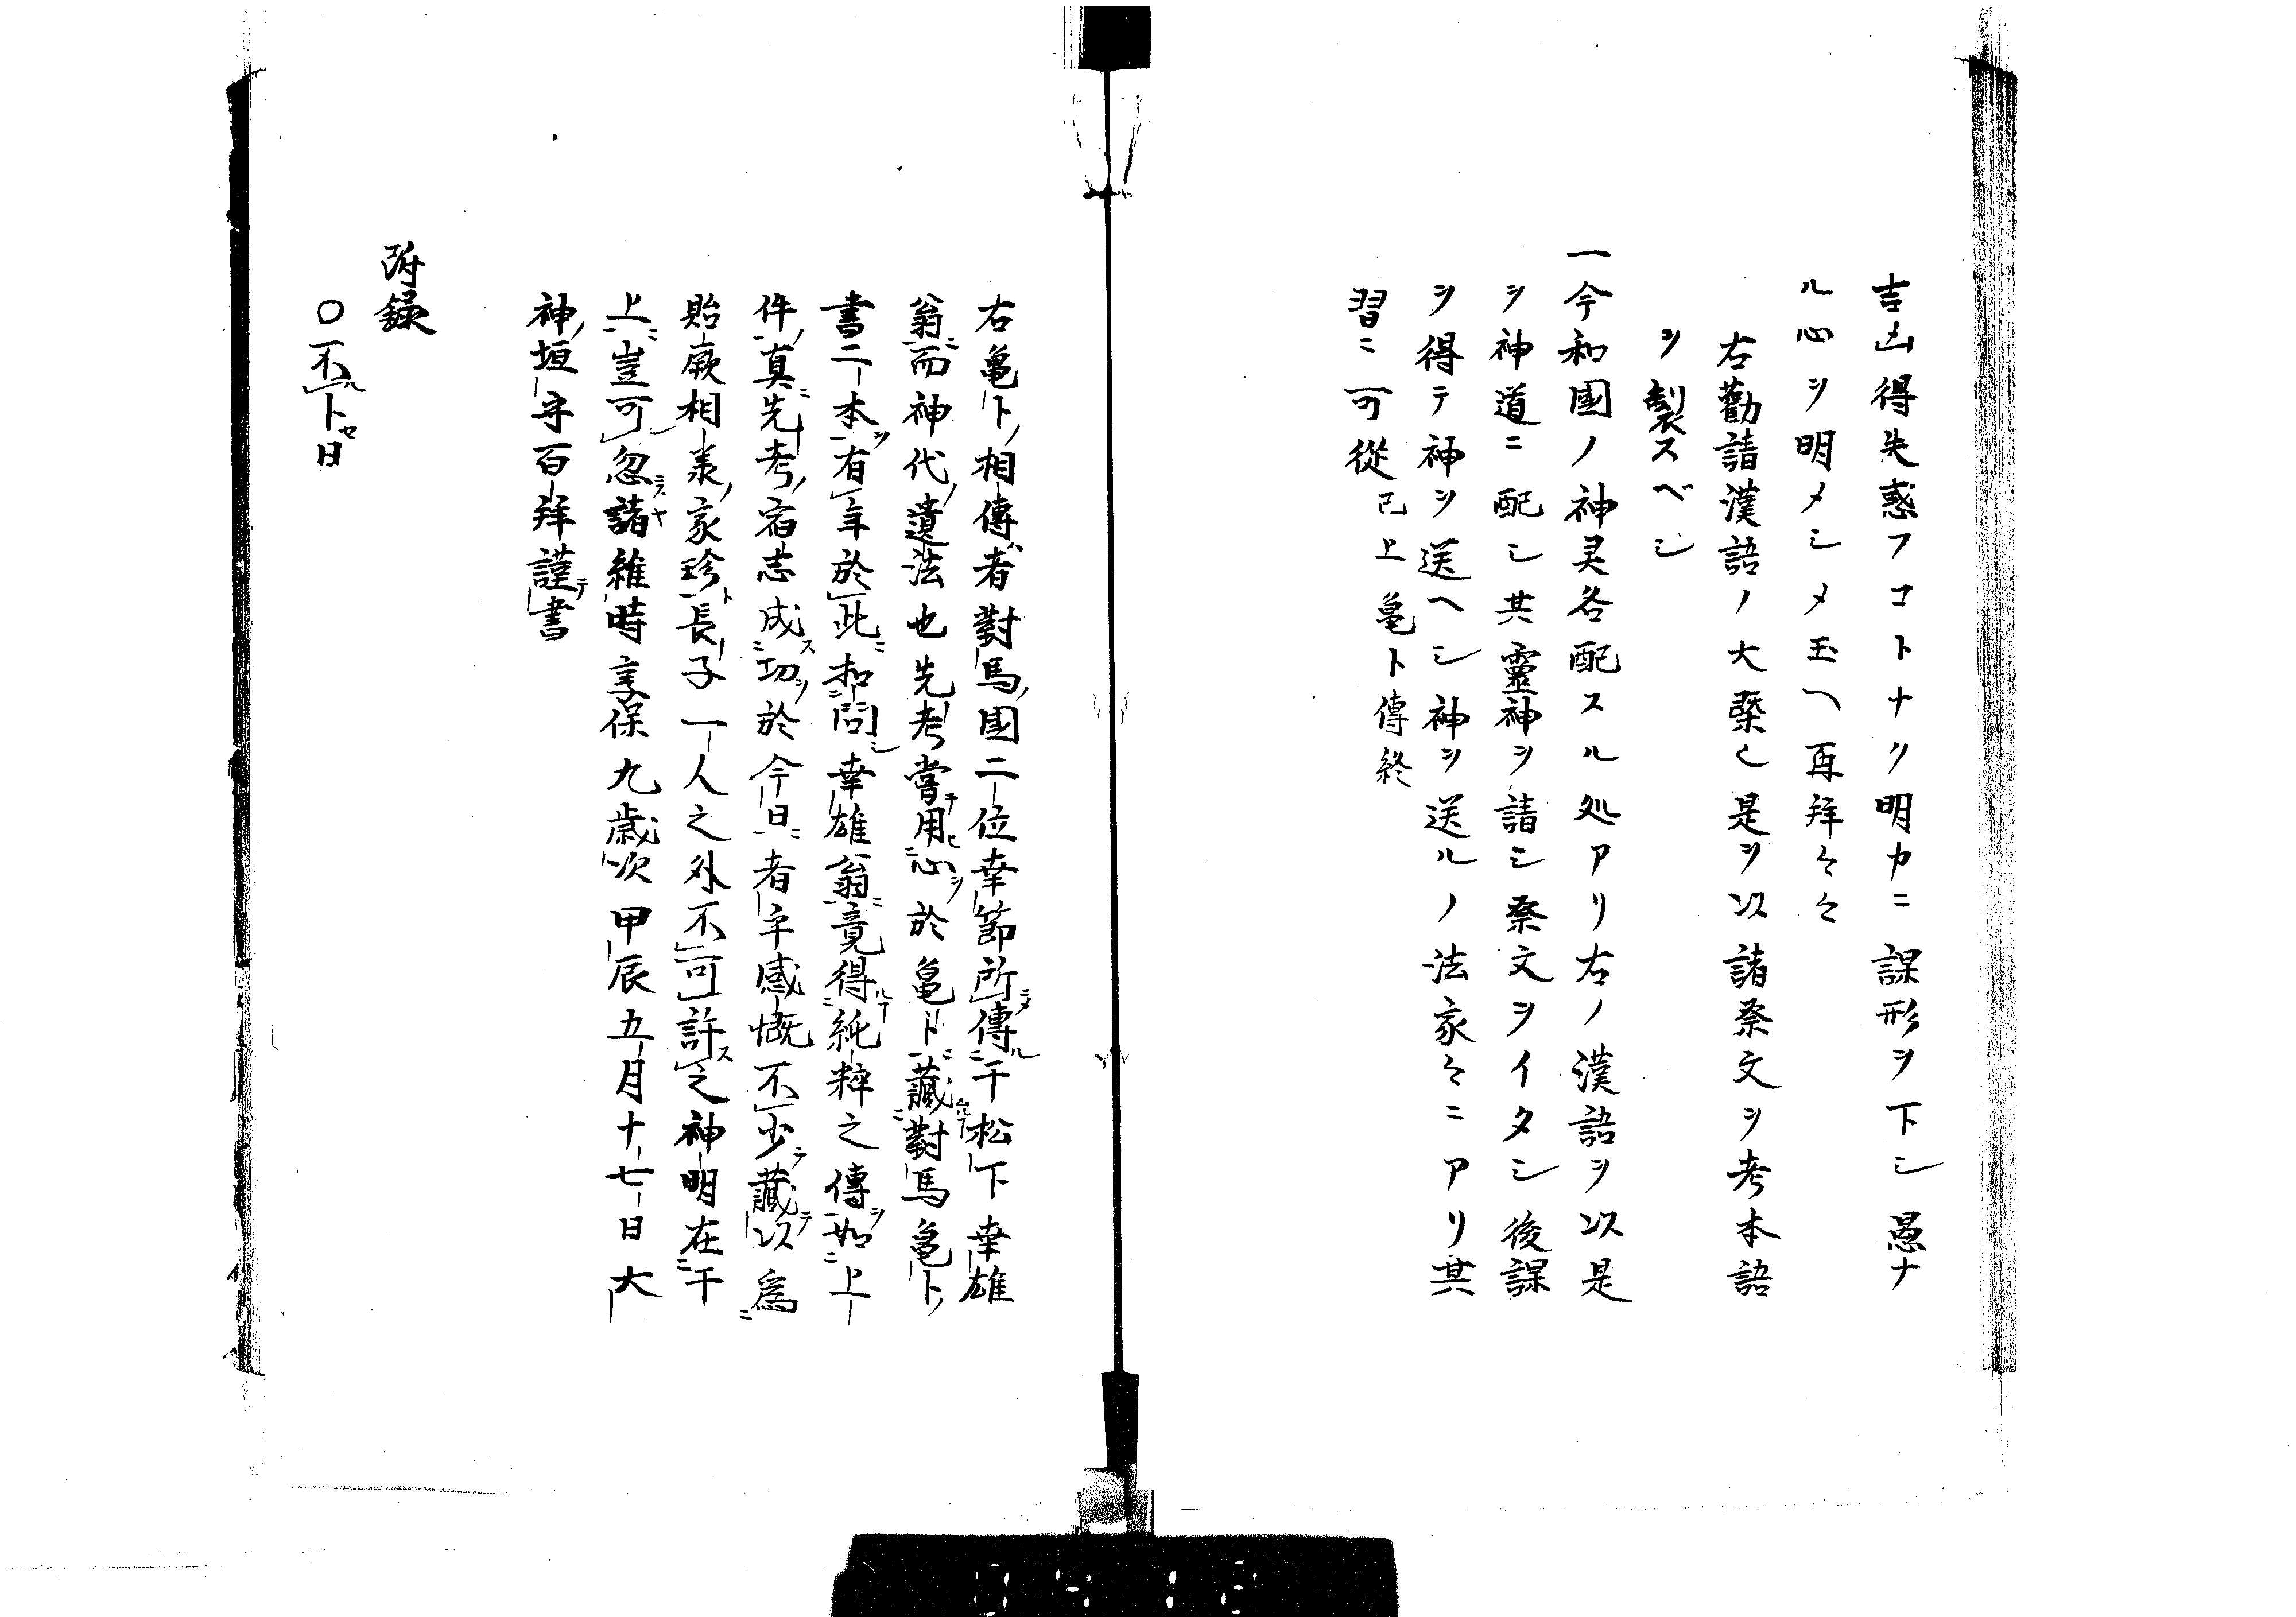 吉凶得失惑フコトナク明カニ課形ヲ下シ愚ナ
ル心ヲ明メシメ玉ヘ再拜々々
右勸請漢語ノ大槩也是ヲ以諸祭文ヲ考本語
ヲ製スベシ
一今和國ノ神灵各配スル処アリ右ノ漢語ヲ以是
ヲ神道ニ配シ其靈神ヲ請シ祭文ヲイタシ後課
ヲ得テ神ヲ送ヘシ神ヲ送ルノ法家々ニアリ其
習ニ可從 已上亀卜傳終
右亀卜ノ相傳者ハ對馬ノ國二位幸節所傳ニ干松下幸雄
翁ニ而神代ノ遺法也先考嘗テ用心ヲ於亀卜ニ藏對馬亀卜ノ
書二本ヲ有年於此ニ扣問シ幸雄翁ニ竟得純粹之傳ヲ如上
件ノ真ニ先考ノ宿志成ス切ヲ於今日ニ者乎感慨不少ラ藏テ以爲
貽厥相羕ノ家珍ト長子一人之外不可許ス之神明在干
上ニ豈可忽諸維時享保九歳次甲辰五月十七日大
神ノ垣守百拜謹テ書
附録
〇不ル卜セ日